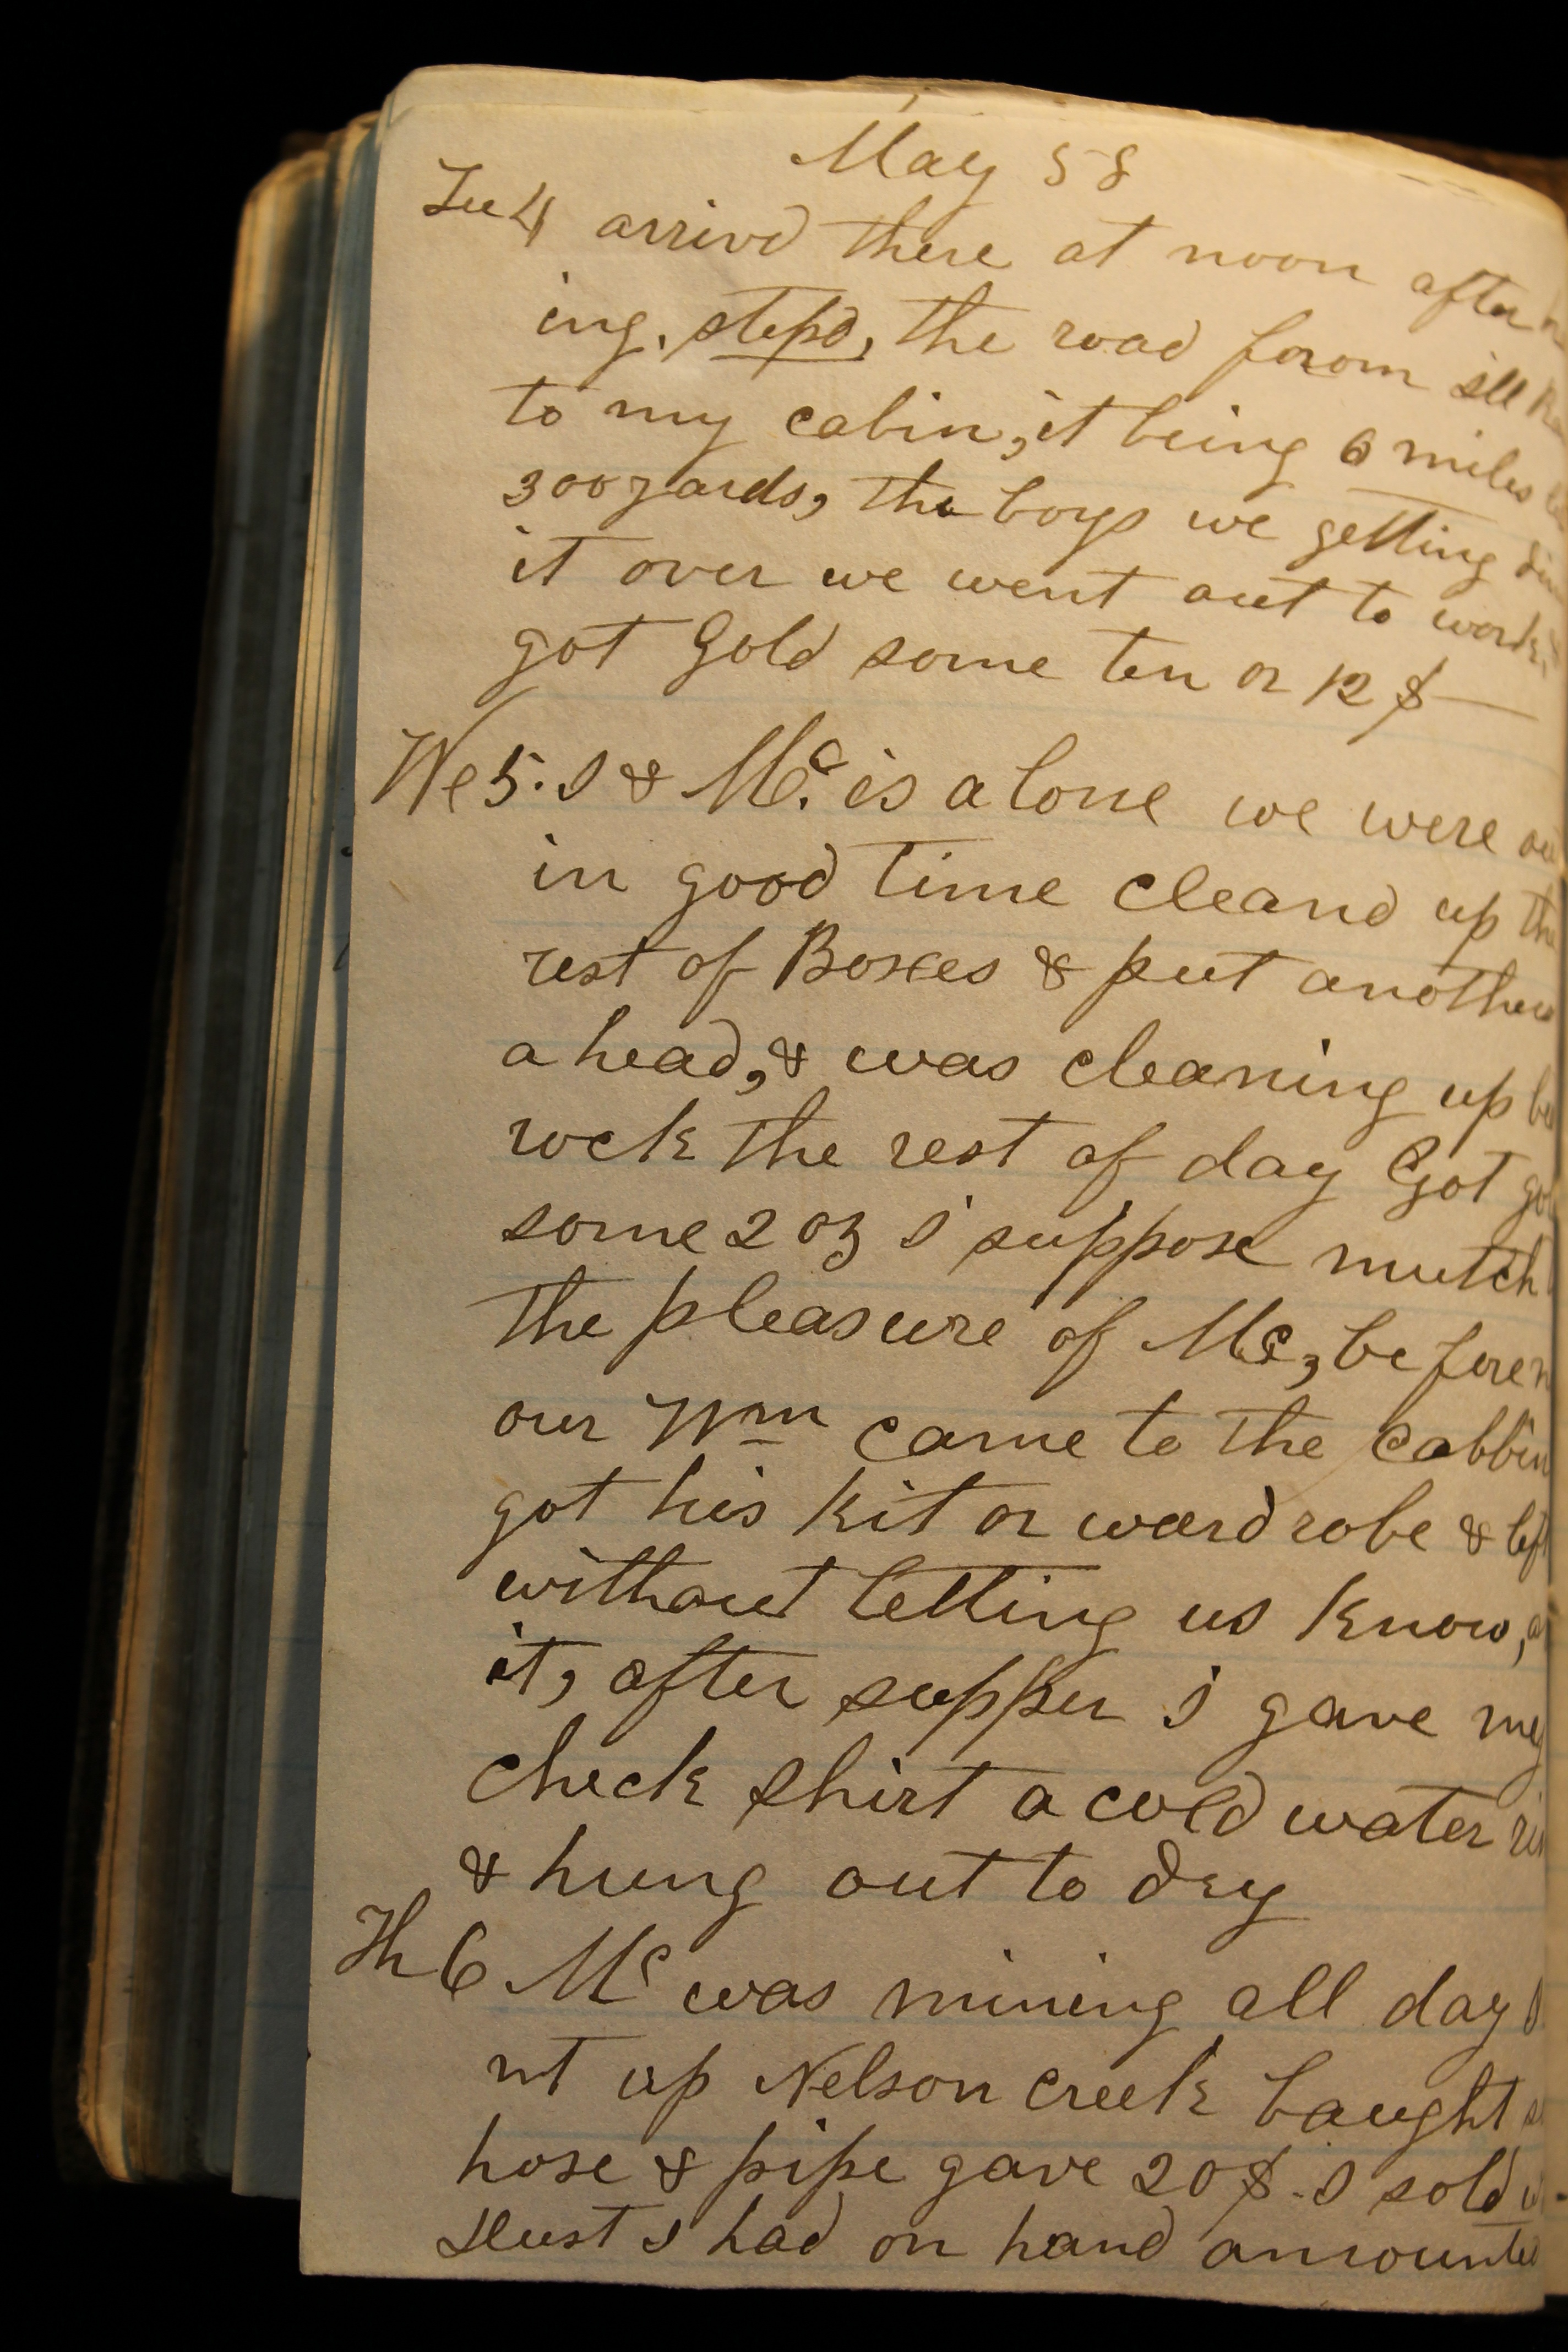 May 58
Tu 4 arrivd there at noon after
ing. stepd, the road forom ill
to my cabin, it being 6 miles
300 yards, the boys we getting
it over we went out to work,
got Gold some ten or 12 $ —
We 5. I & Mc. is alone we were
in good time cleand up the
rest of Boxes & put another
a head, & was cleaning up
rock the rest of day Got
some 2 oz I suppose mutch
the pleasure of Mc, be fore
our Wm came to the Cabbin
got his kit or ward robe & left
without letting us know,
it, after supper I gave my
check shirt a cold water
& hung out to dry
Th 6 Mc was mining all day I
nt up Nelson creek baught
hose & pipe gave 20 $. I sold
Dust I had on hand amounted